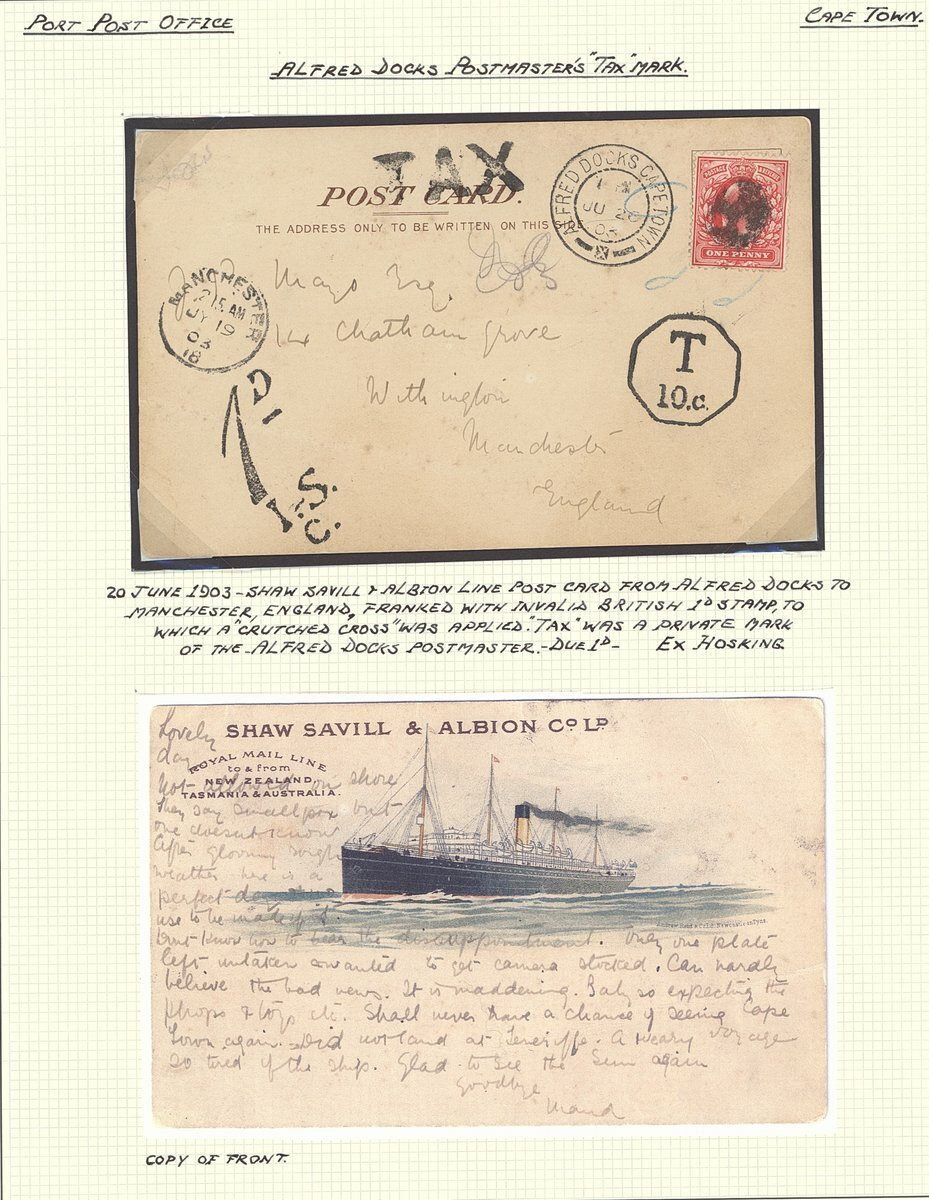 PORT POST OFFICE
CAPE TOWN.
ALFRED DOCKS POSTMASTER'S "TAX" MARK.
TAX
POST CARD.
THE ADDRESS ONLY TO BE WRITTEN ON THIS SIDE
ALFRED DOCKS CAPE TOWN
JU 20
03
POSTAGE REVENUE
ONE PENNY
MANCHESTER
2 15 AM
JY 19
03
18
Mayo Esq.
14 Chatham Grove
Withington
Manchester
England
T
10.c.
1D
I.S.
M.C.
20 JUNE 1903 - SHAW SAVILL & ALBION LINE POST CARD FROM ALFRED DOCKS TO
MANCHESTER, ENGLAND, FRANKED WITH INVALID BRITISH 1D STAMP, TO
WHICH A "CRUTCHED CROSS" WAS APPLIED. "TAX" WAS A PRIVATE MARK
OF THE ALFRED DOCKS POSTMASTER. - DUE 1D - EX HOSKING.
SHAW SAVILL & ALBION Co. LD.
ROYAL MAIL LINE
to & from
NEW ZEALAND,
TASMANIA & AUSTRALIA.
Lovely
day
Not allowed on shore
They say smallpox but
one doesnt know
After gloomy rough
weather here is a
perfect day & no
use to be made of it.
Dont know how to bear the disappointment. Only one plate
left untaken & wanted to get camera stocked. Can hardly
believe the bad news. It is maddening. Baby so expecting the
shops & toys etc. Shall never have a chance of seeing Cape
Town again. Did not land at Teneriffe. A weary voyage
so tired of the ship. Glad to see the Sun again
Goodbye
Maud
COPY OF FRONT.